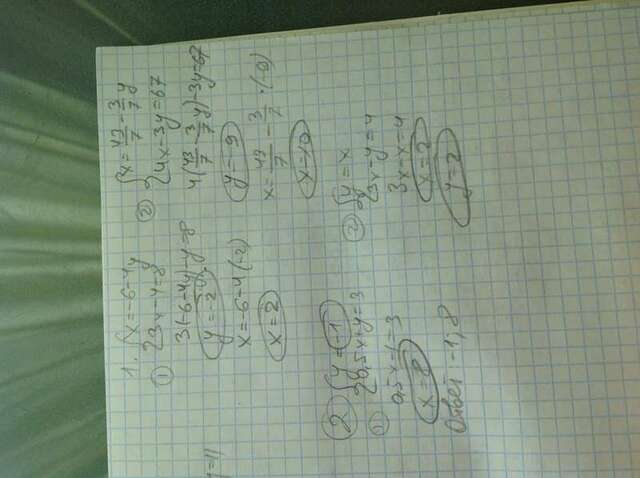 1. { x = -6-4y
① { 3x-y=8
3(-6-4y)-y=8
y=-2
x=-6-4(-2)
x=2
② { x = 43/7 - 3/7 y
{ 4x-3y=67
4(43/7 - 3/7 y)-3y=67
y=-9
x = 43/7 - 3/7 · (-9)
x=10
2 { y=-1
① { 0,5x+y=3
0,5x-1=3
x=8
Ответ: -1, 8
② { y=x
{ 3x-y=4
3x-x=4
x=2
y=2
=11